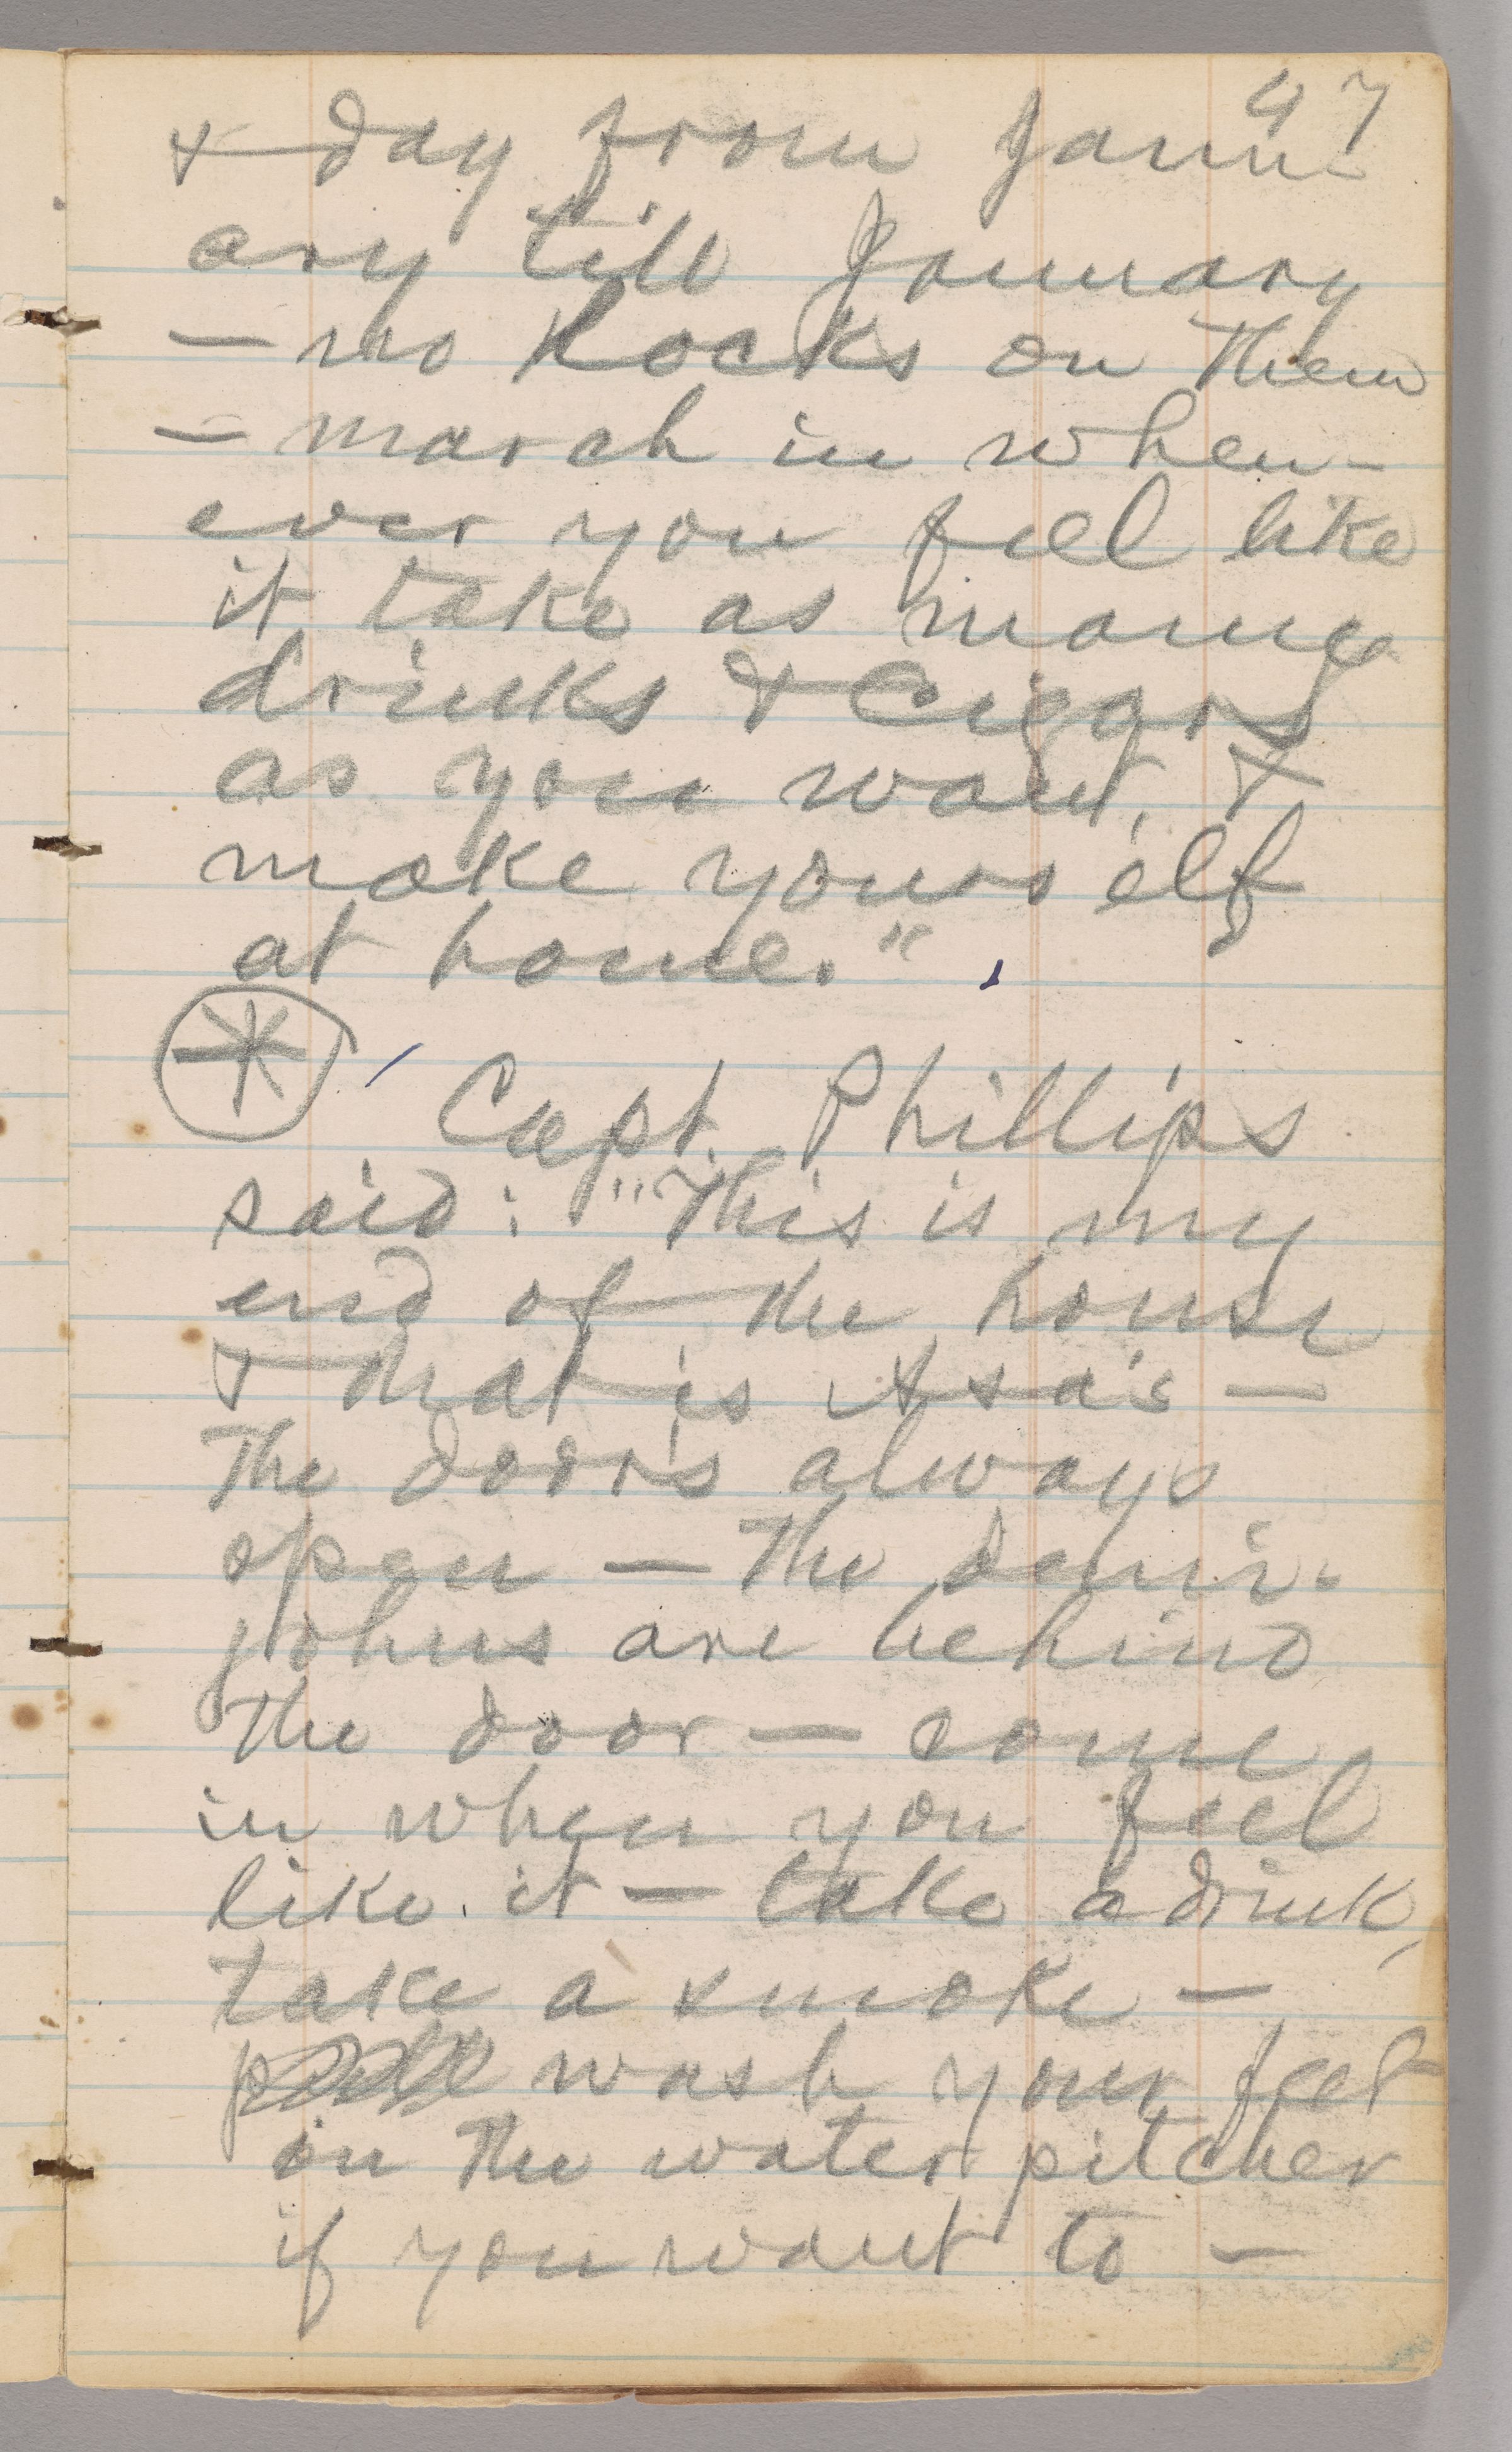 47
& day from Janu-
ary till January
— no locks on them
— march in when-
ever you feel like
it take as many
drinks & cigars
as you want, &
make yourself
at home."
* Capt. Phillips
said: "This is my
end of the house
& that is Asa's —
The doors always
open — the demi-
johns are behind
the door — come
in when you feel
like it — take a drink,
take a smoke —
wash your feet
in the water pitcher
if you want to —